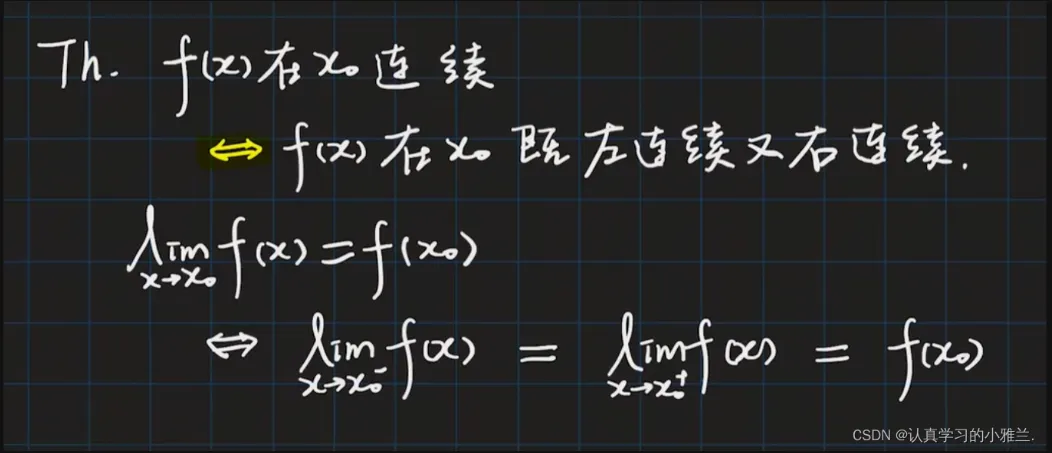 Th. f(x)在x₀连续
⇔ f(x)在x₀既左连续又右连续.
lim x→x₀ f(x)=f(x₀)
⇔ lim x→x₀⁻ f(x) = lim x→x₀⁺ f(x) = f(x₀)
CSDN @认真学习的小雅兰.